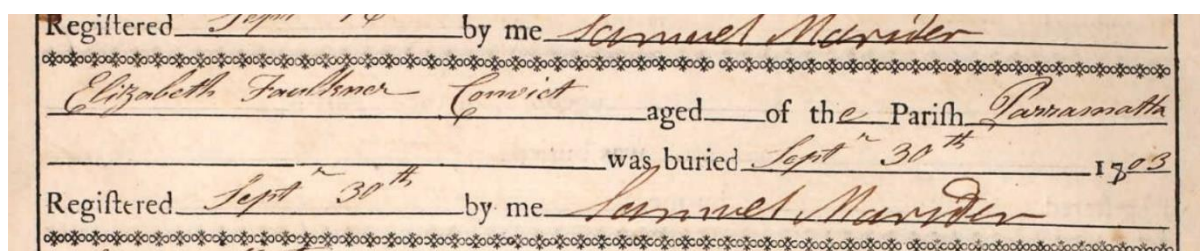 Regiſtered Sept 14 by me Samuel Marsden
Elizabeth Faulkner Convict aged of the Pariſh Parramatta
was buried Septr 30th 1803
Regiſtered Septr 30th by me Samuel Marsden